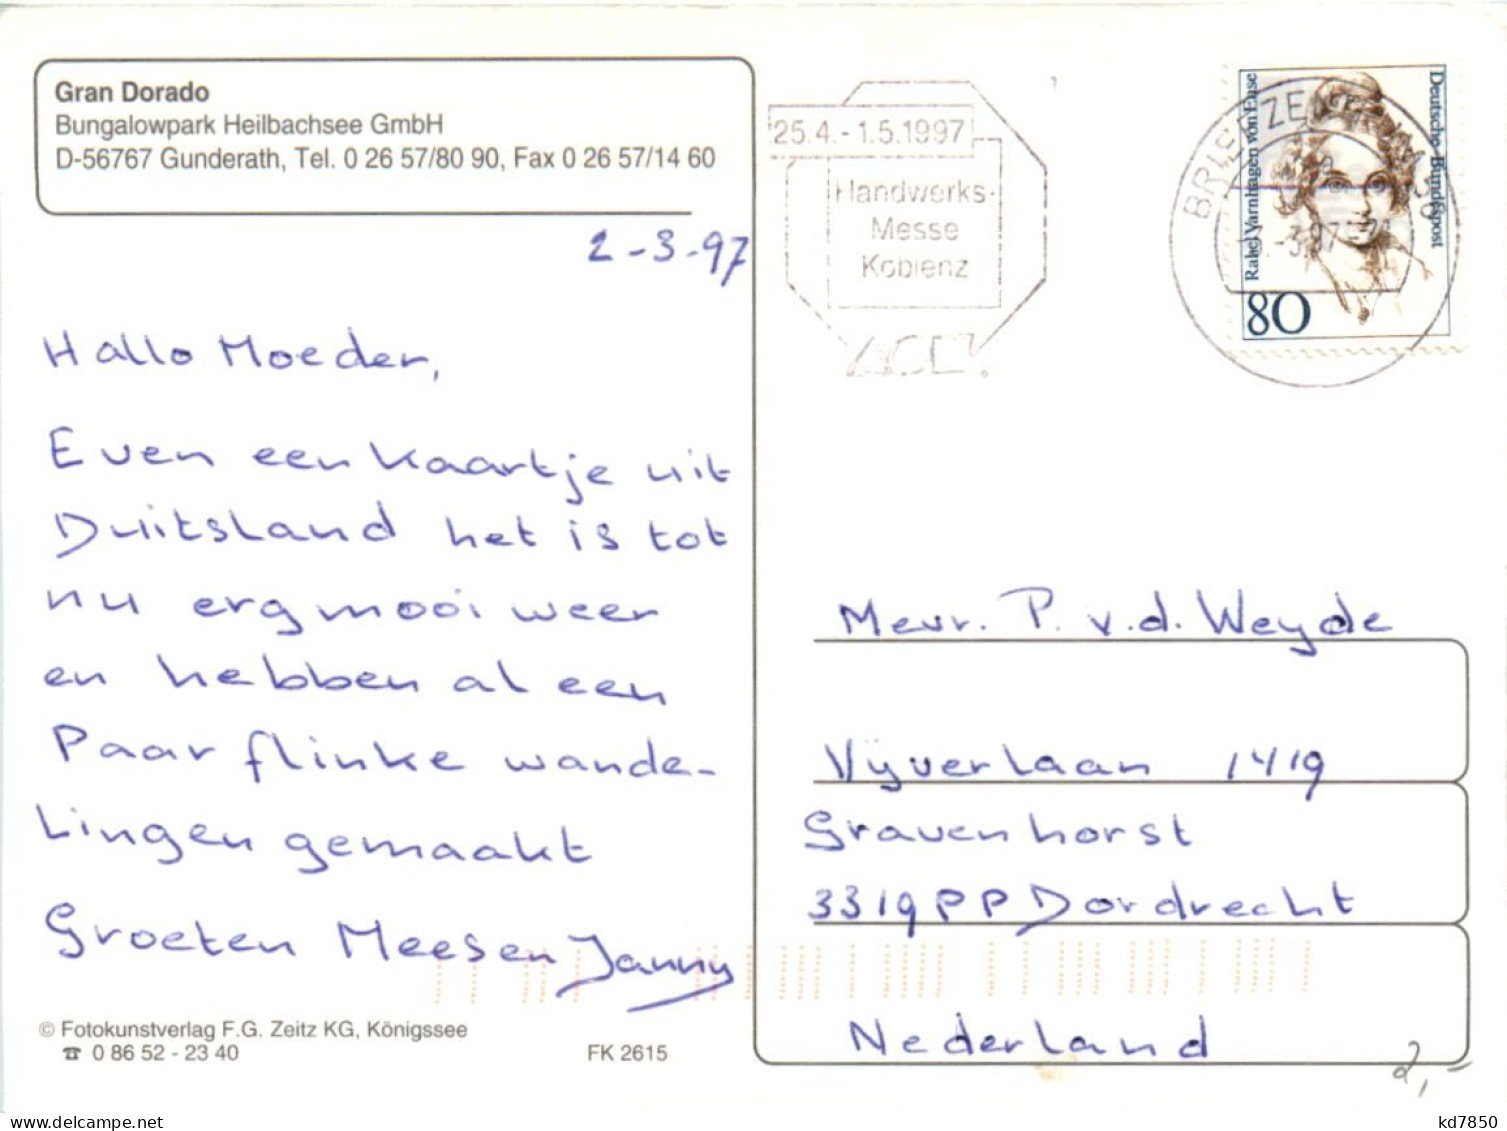 Gran Dorado
Bungalowpark Heilbachsee GmbH
D-56767 Gunderath, Tel. 0 26 57/80 90, Fax 0 26 57/14 60
2-3-97
Hallo Moeder,
Even een kaartje uit
Duitsland het is tot
nu erg mooi weer
en hebben al een
Paar flinke wande-
lingen gemaakt
Groeten Mees en Janny
© Fotokunstverlag F.G. Zeitz KG, Königssee
☎ 0 86 52 - 23 40
FK 2615
25.4.-1.5.1997
Handwerks-
Messe
Koblenz
Rahel Varnhagen von Ense
Deutsche Bundespost
80
Mevr. P. v.d. Weyde
Vijverlaan 1419
Gravenhorst
3319PP Dordrecht
Nederland
2,-
kd7850